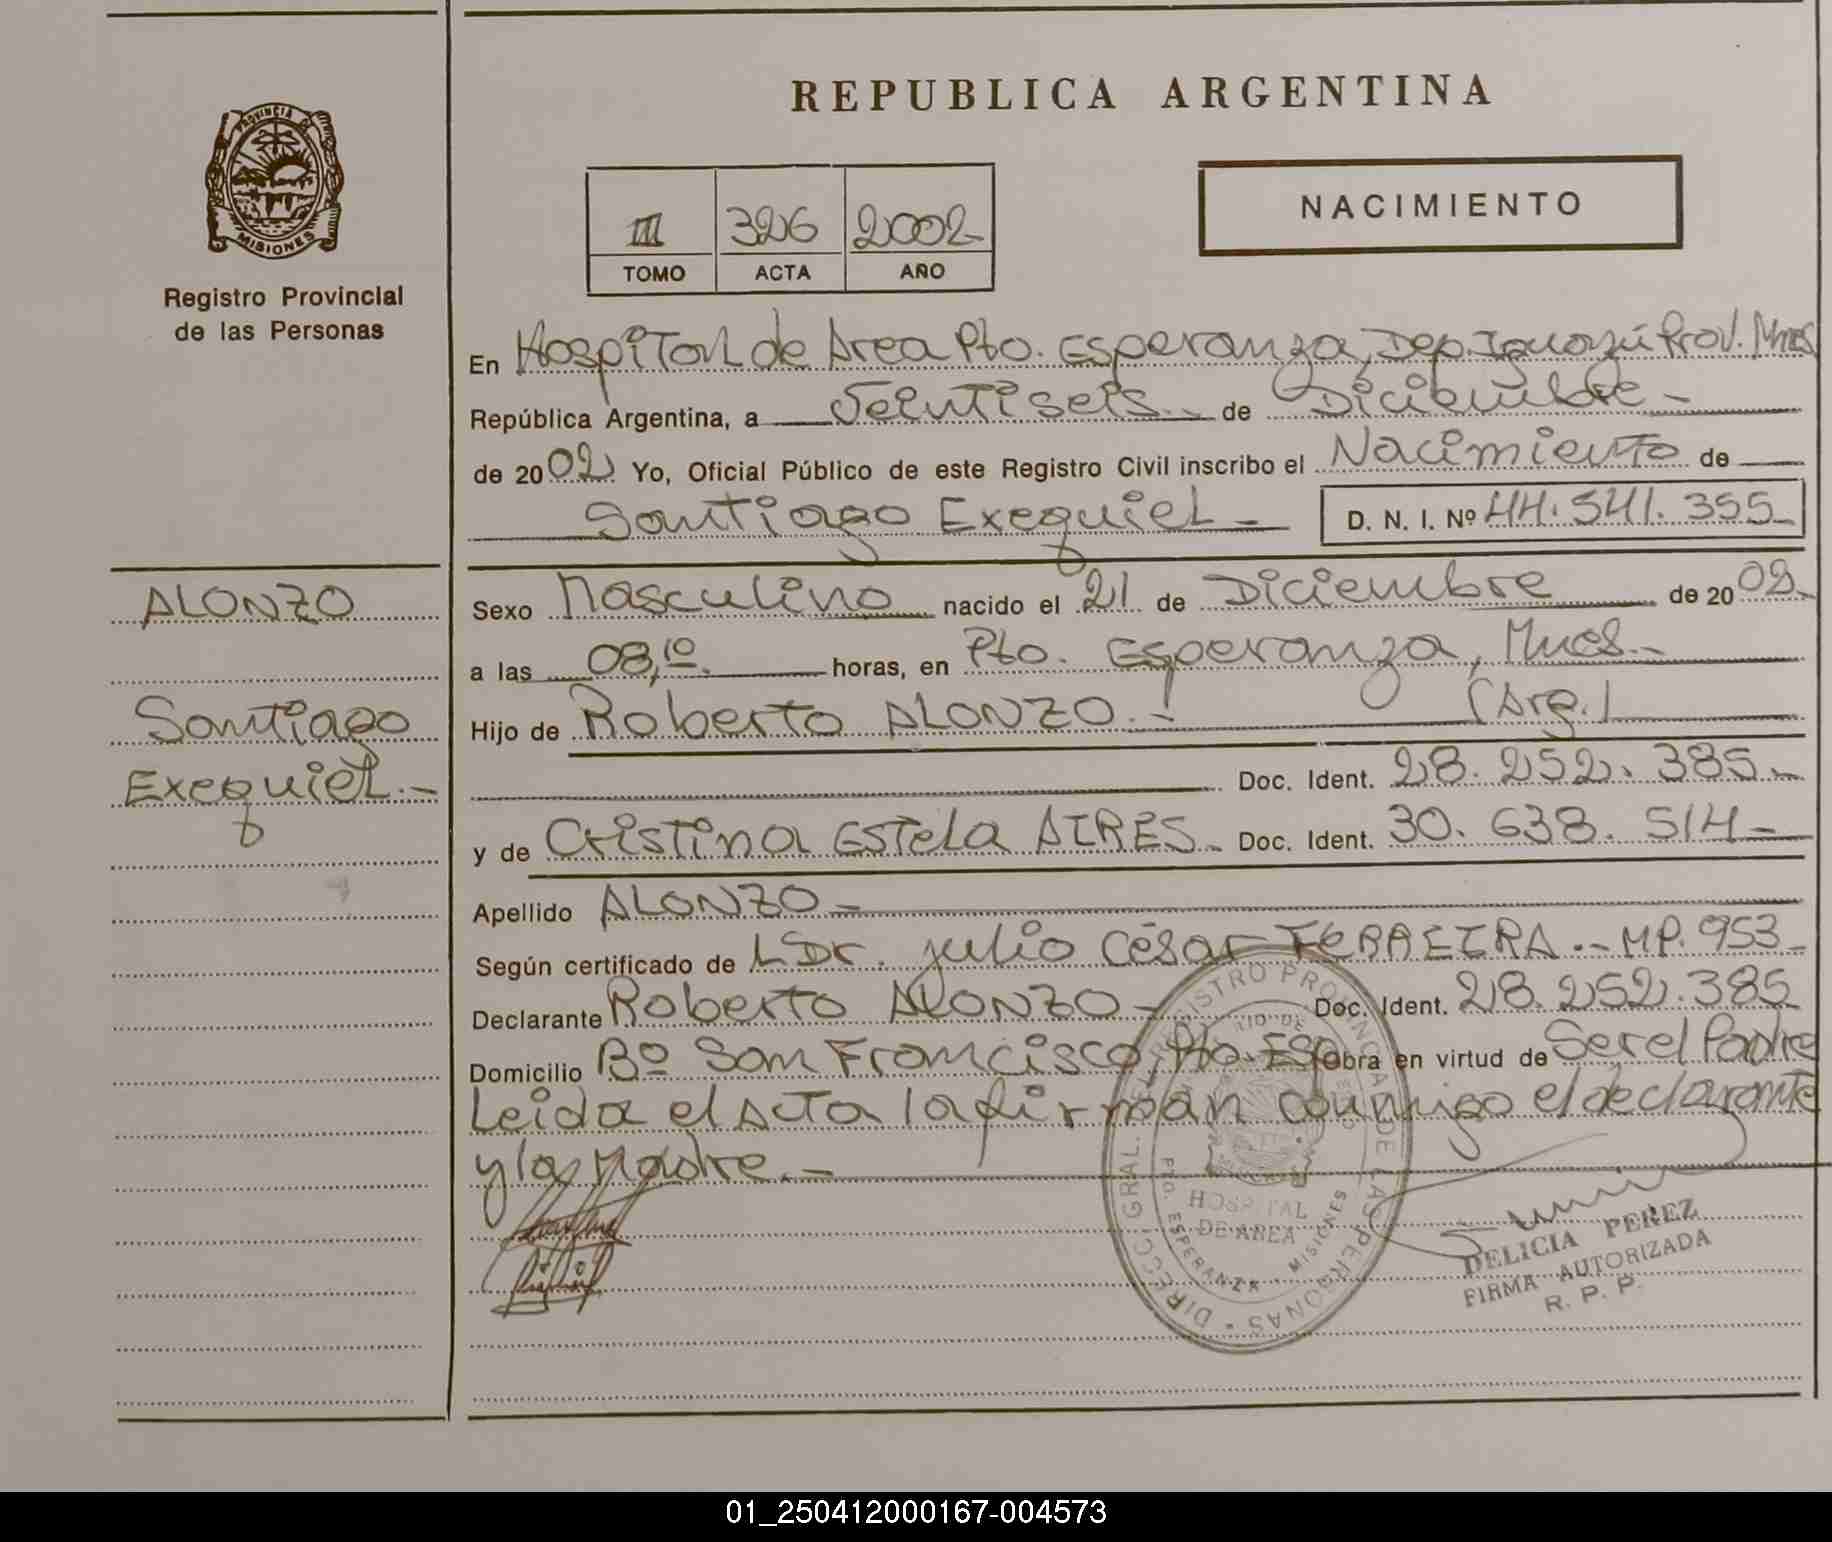 REPUBLICA ARGENTINA
PROVINCIA DE
MISIONES
Registro Provincial
de las Personas
III 326 2002
TOMO ACTA AÑO
NACIMIENTO
En Hospital de Area Pto. Esperanza, Dep. Iguazú Prov. Mnes
República Argentina, a Veintiseis.- de Diciembre -
de 2002 Yo, Oficial Público de este Registro Civil inscribo el Nacimiento de
Santiago Exequiel - D. N. I. Nº 44.541.355-
ALONZO
Santiago
Exequiel.-
Sexo Masculino nacido el 21 de Diciembre de 2002-
a las 08,10. horas, en Pto. Esperanza, Mnes.-
Hijo de Roberto ALONZO.- (Arg.)
Doc. Ident. 28.252.385.-
y de Cristina Estela AIRES- Doc. Ident. 30.638.514-
Apellido ALONZO -
Según certificado de Dr. Julio César FERREIRA.- MP. 953-
Declarante Roberto ALONZO - Doc. Ident. 28.252.385
Domicilio Bº San Francisco, Pto. Esp Obra en virtud de Ser el Padre
Leida el Acta la firman conmigo el declarante
y la Madre.-
DIRECC. GRAL. REGISTRO PROVINCIAL DE LAS PERSONAS
HOSPITAL
DE AREA
PTO. ESPERANZA - MISIONES
DELICIA PEREZ
FIRMA AUTORIZADA
R. P. P.
01_250412000167-004573